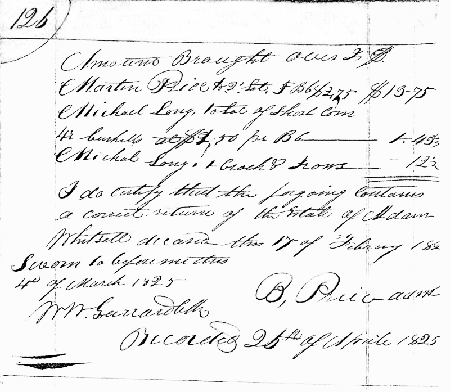 126
Amount Brought over
Martin Price $13-75
Michael Long 1 Lot of Shod Corn
4½ bushells at $1,50 per Bb
Michal Long 1 Crack & Irons 12½
I do certify that the forgoing Contains
a correct return of the Estate of Adam
Whitsell deceased this 17 of February 182
Sworn to before me this
4th of March 1825
B, Price adm
Recorded 25th of Aprile 1825